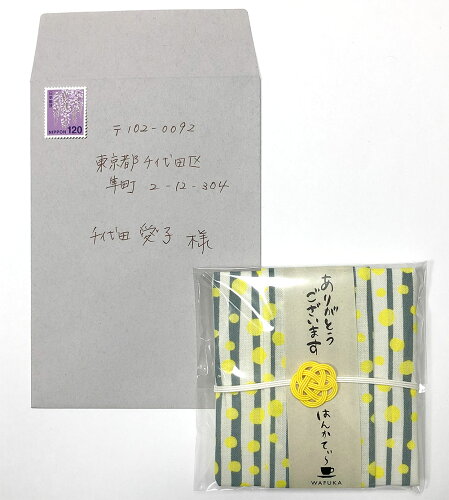 NIPPON 120
〒102-0092
東京都千代田区
隼町 2-12-304
千代田 愛子 様
ありがとう
ございます
はんかてぃ～
WAFUKA